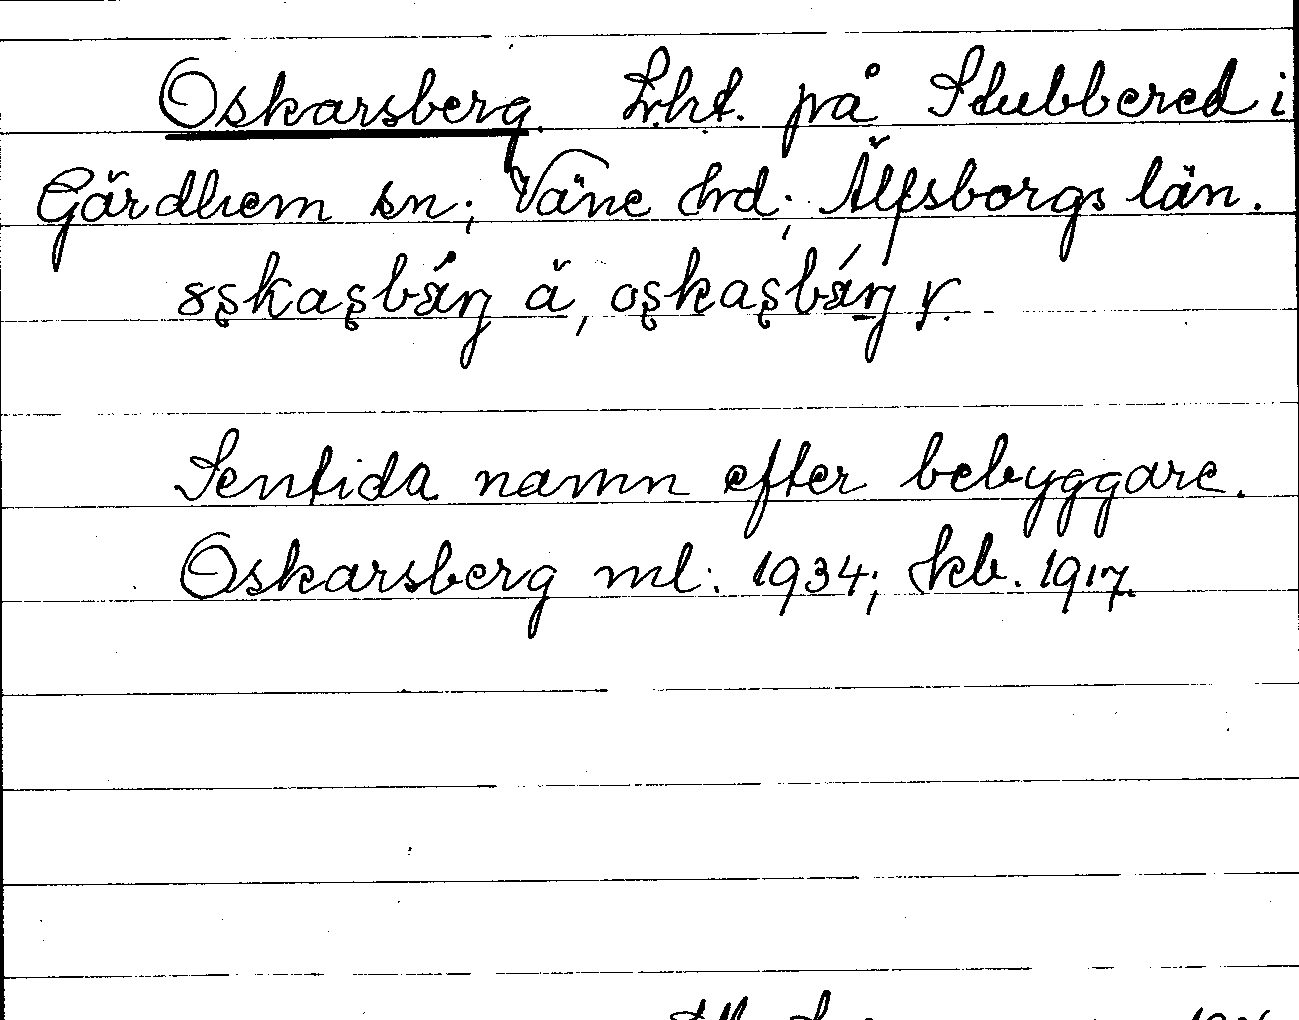 Oskarsberg. Lht. på Stubbered i
Gärdhem sn; Väne hd; Älfsborgs län.
ä, r.
Sentida namn efter bebyggare.
Oskarsberg ml. 1934; kb. 1917.